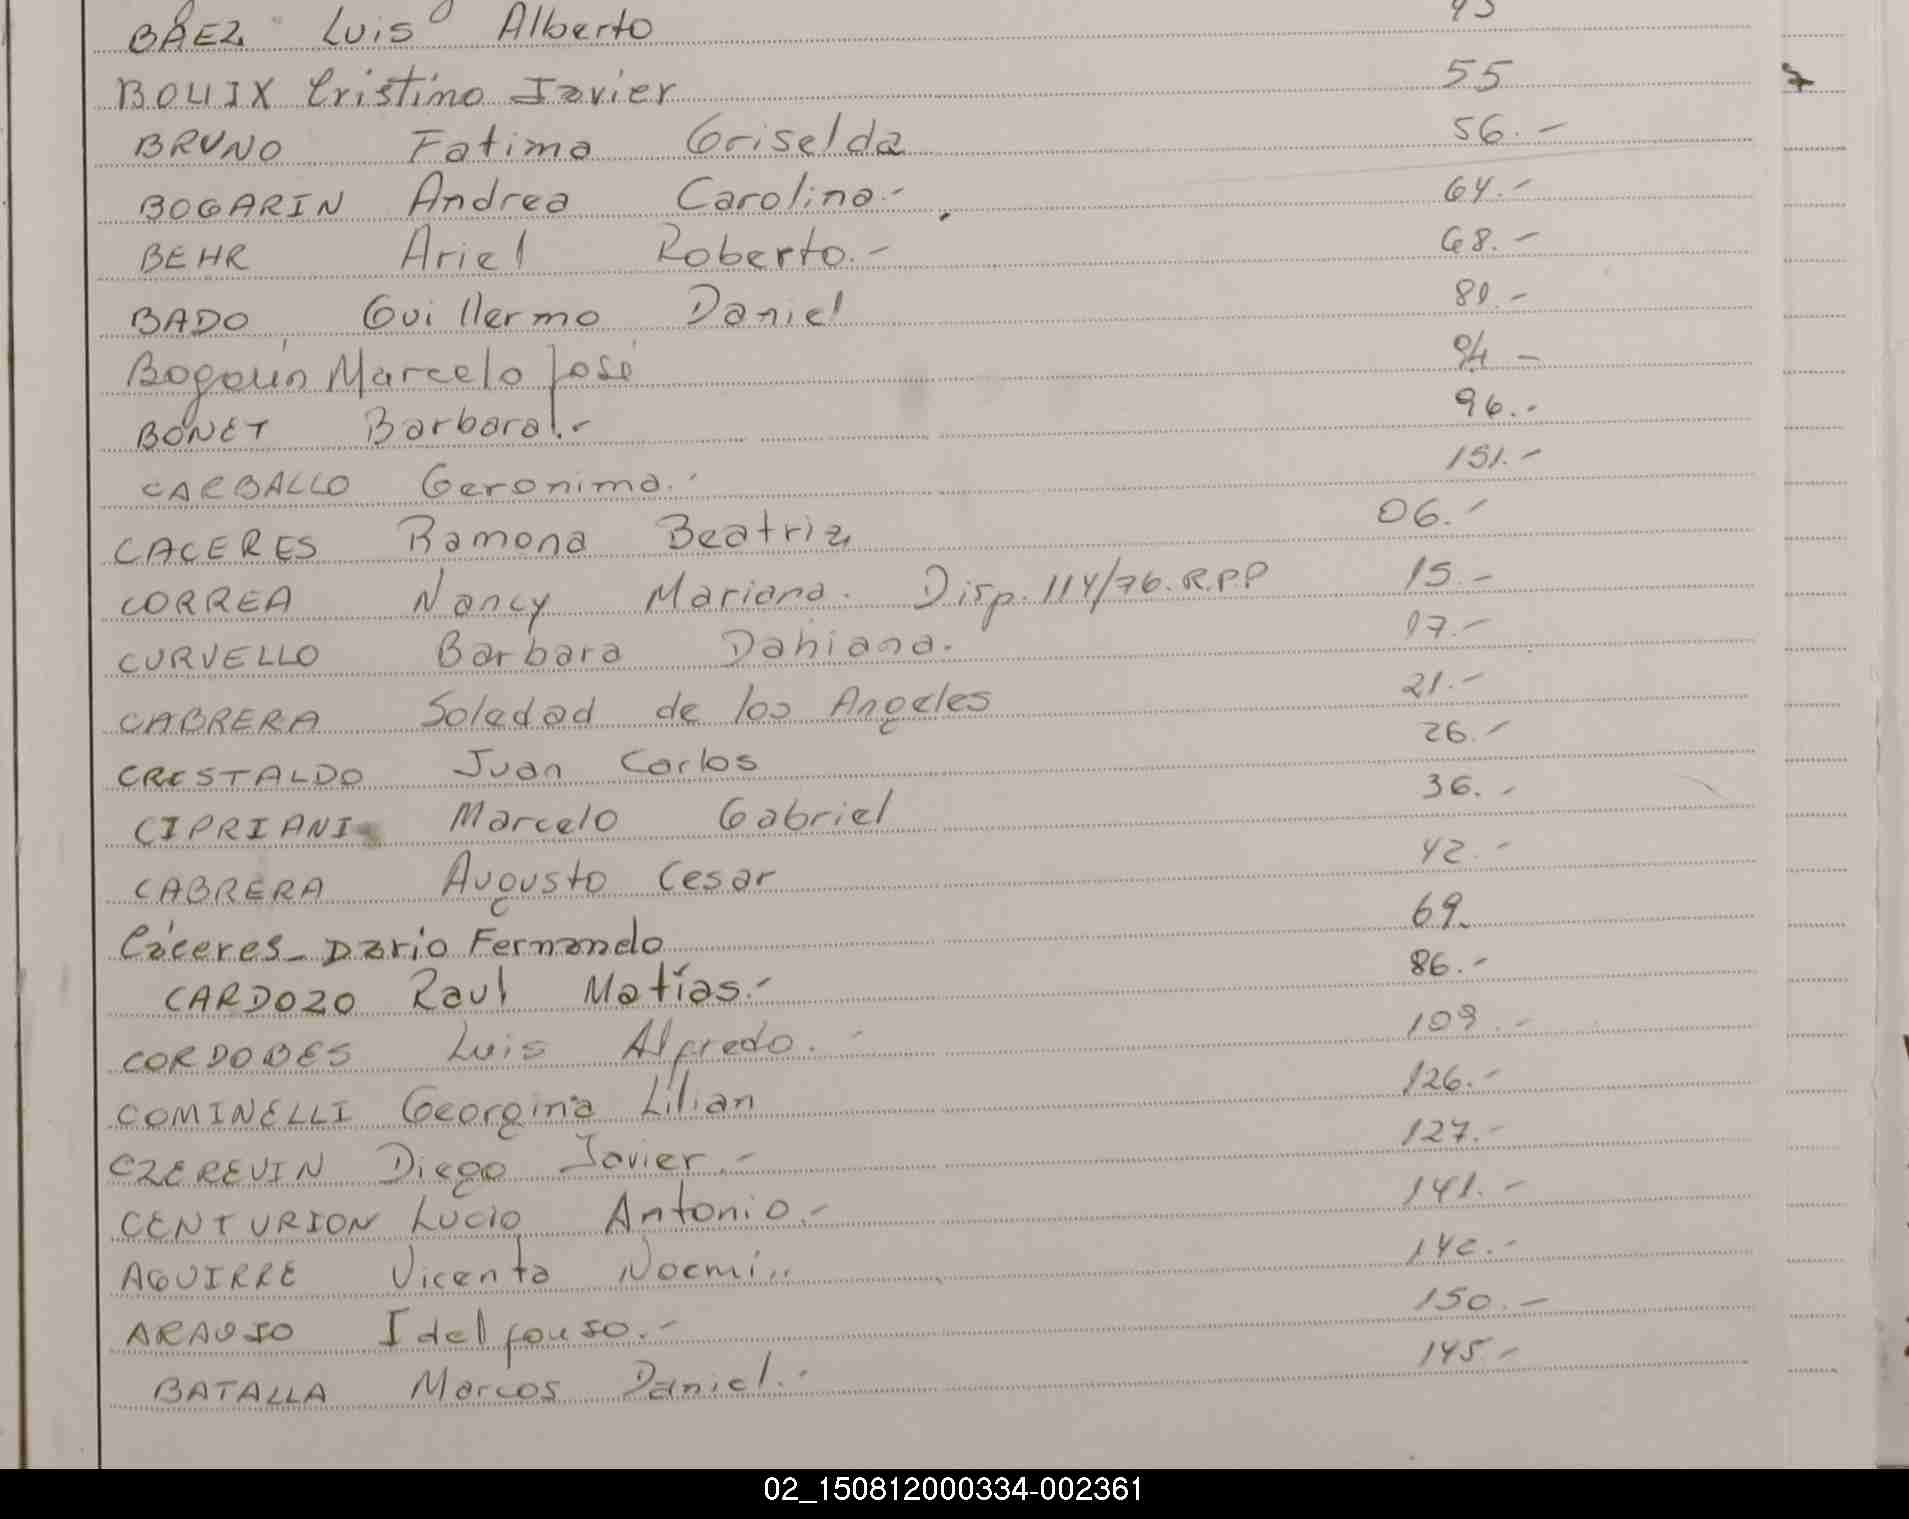 BÁEZ Luis Alberto 45
BOUIX Cristino Javier 55
BRUNO Fatima Griselda 56.-
BOGARIN Andrea Carolina.- 64.-
BEHR Ariel Roberto.- 68.-
BADO Guillermo Daniel 81.-
Bogarín Marcelo José 94.-
BONET Barbara.- 96.-
CARBALLO Geronima.- 151.-
CACERES Ramona Beatriz 06.-
CORREA Nancy Mariana. Disp. 114/76.R.P.P 15.-
CURVELLO Barbara Dahiana. 17.-
CABRERA Soledad de los Angeles 21.-
CRESTALDO Juan Carlos 26.-
CIPRIANI Marcelo Gabriel 36.-
CABRERA Augusto Cesar 42.-
Cáceres Dario Fernando 69.
CARDOZO Raul Matías.- 86.-
CORDOBES Luis Alfredo.- 109.-
COMINELLI Georgina Lilian 126.-
CZEREVIN Diego Javier.- 127.-
CENTURION Lucio Antonio.- 141.-
AGUIRRE Vicenta Noemi.. 142.-
ARAUJO Idelfonso.- 150.-
BATALLA Marcos Daniel.- 145.-
02_150812000334-002361